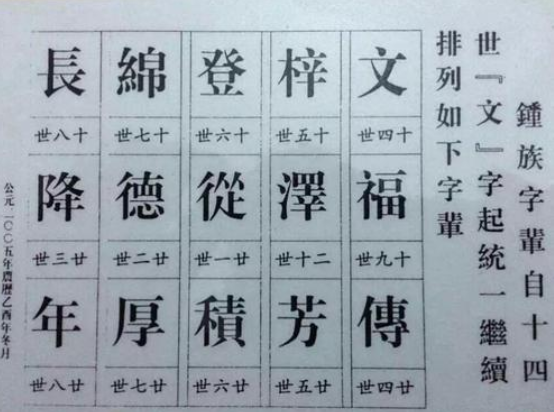 鍾族字輩自十四
世『文』字起統一繼續
排列如下字輩
文 梓 登 綿 長
十四世 十五世 十六世 十七世 十八世
福 澤 從 德 降
十九世 二十世 廿一世 廿二世 廿三世
傳 芳 積 厚 年
廿四世 廿五世 廿六世 廿七世 廿八世
公元二〇〇五年農曆乙酉年冬月